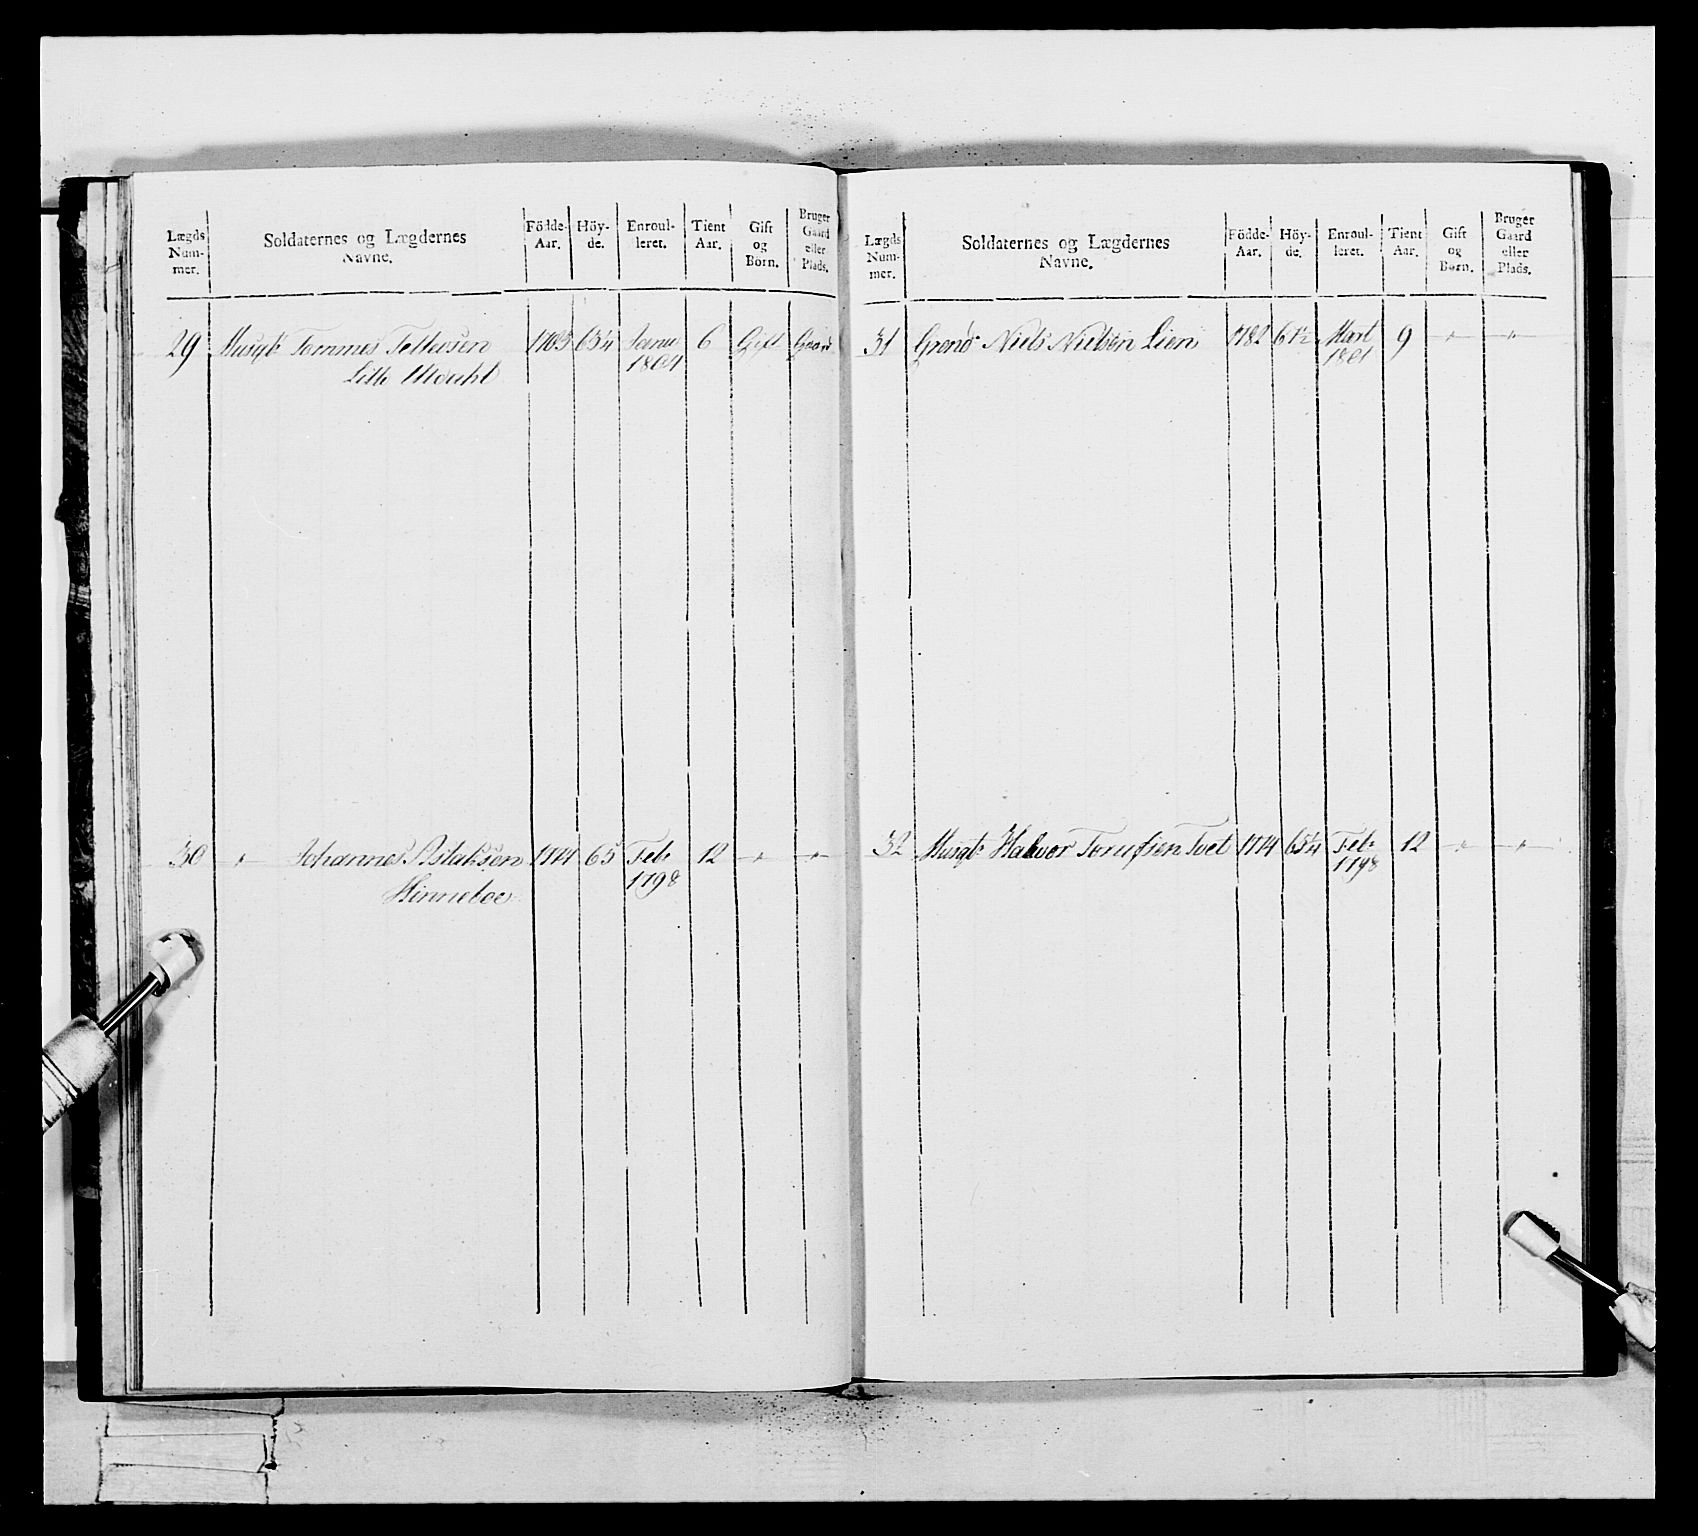 Lægds Num- mer.
Soldaternes og Lægdernes Navne.
Födde- Aar.
Höy- de.
Enroul- leret.
Tient Aar.
Gift og Börn.
Bruger Gaard eller Plads.
29 Musqt: Tommes Tellevsen 63¼ 6 Gift Gaard
Lille 1804
30 " Johannes Aslaksen 1774 65 Feb: 12 " "
Hinneboe 1798
Lægds Num- mer.
Soldaternes og Lægdernes Navne.
Födde- Aar.
Höy- de.
Enroul- leret.
Tient Aar.
Gift og Börn.
Bruger Gaard eller Plads.
31 Grend: Niels Nielsen Lien 1782 61½ Mart 9 " "
1801
32 Musqt: Halvor Tvet 1774 65¼ Feb: 12 " "
1798